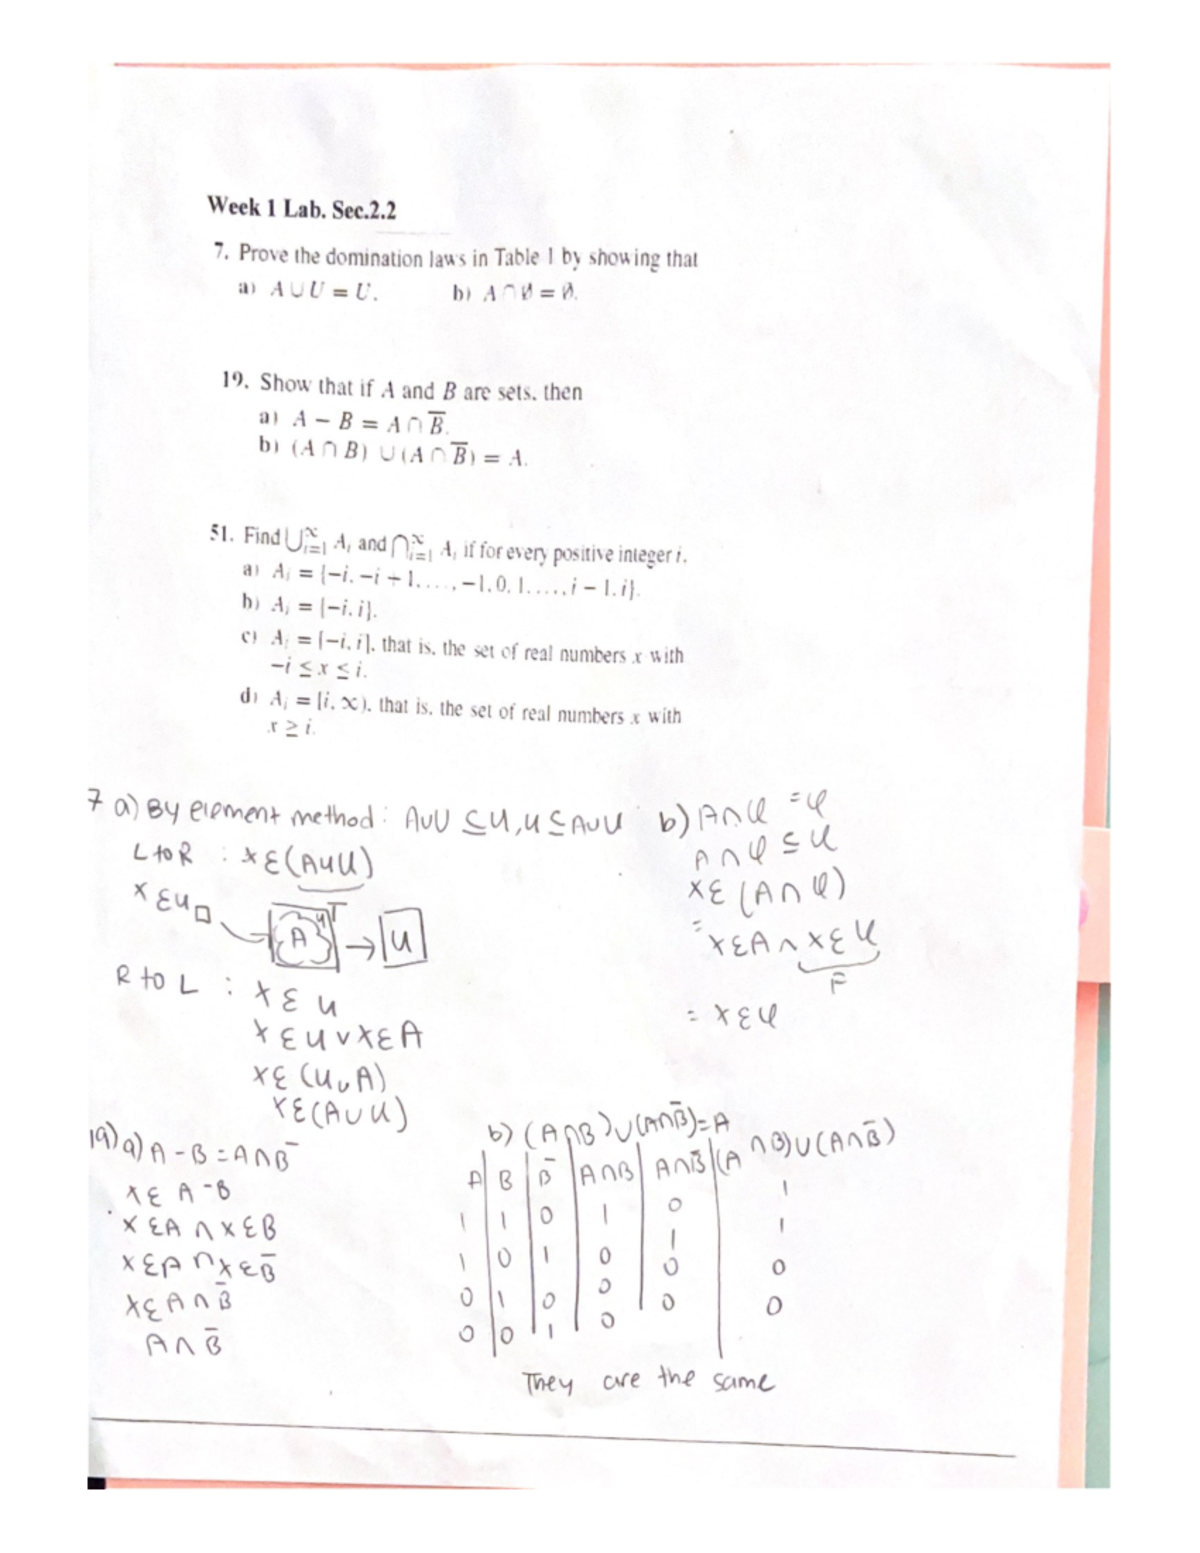 Week 1 Lab. Sec.2.2
7. Prove the domination laws in Table 1 by showing that
a) A ∪ U = U. b) A ∩ ∅ = ∅.
19. Show that if A and B are sets, then
a) A − B = A ∩ B̅.
b) (A ∩ B) ∪ (A ∩ B̅) = A.
51. Find ⋃∞i=1 Ai and ⋂∞i=1 Ai if for every positive integer i.
a) Ai = {−i, −i + 1, . . . , −1, 0, 1, . . . , i − 1, i}.
b) Ai = {−i, i}.
c) Ai = [−i, i], that is, the set of real numbers x with
−i ≤ x ≤ i.
d) Ai = [i, ∞), that is, the set of real numbers x with
x ≥ i.
7 a) By element method: A∪U ⊆ U, U ⊆ A∪U
L to R : x ε (A∪U)
x ε U □
A U → U
R to L : x ε U
x ε U ∨ x ε A
x ε (U ∪ A)
x ε (A ∪ U)
b) A∩φ = φ
A∩φ ⊆ U
x ε (A ∩ φ)
= x ε A ∩ x ε φ
F
= x ε φ
19) a) A - B = A∩B̅
x ε A - B
x ε A ∩ x ε B
x ε A ∩ x ε B̅
x ε A ∩ B̅
A ∩ B̅
b) (A∩B)∪(A∩B̅)=A
A B B̅ A∩B A∩B̅ (A∩B)∪(A∩B̅)
1 1 0 1 0 1
1 0 1 0 1 1
0 1 0 0 0 0
0 0 1 0 0 0
They are the same